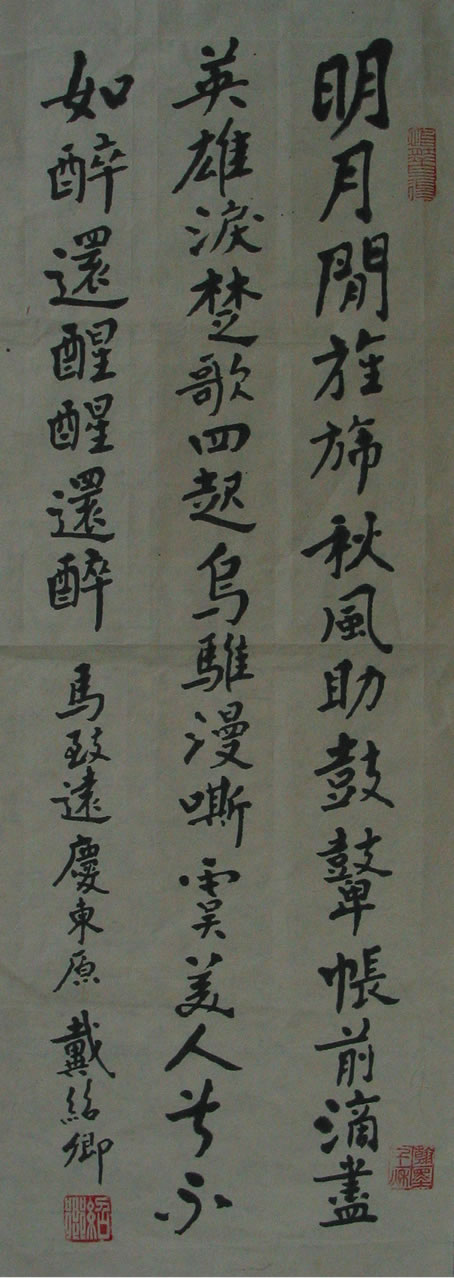 明月閒旌旆秋風助鼓鼙帳前滴盡
英雄淚楚歌四起烏騅漫嘶虞美人兮不
如醉還醒醒還醉 馬致遠慶東原 戴紹卿
紹卿